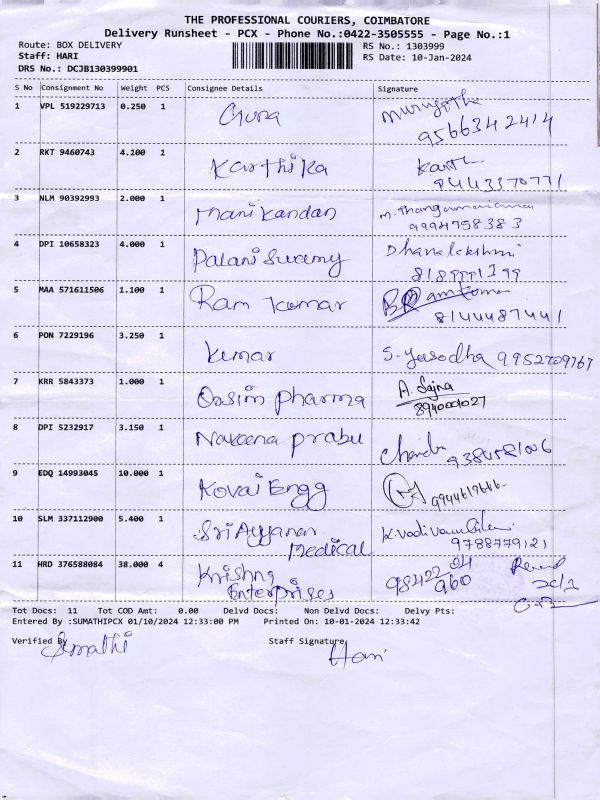 THE PROFESSIONAL COURIERS, COIMBATORE
Delivery Runsheet - PCX - Phone No.:0422-3505555 - Page No.:1
Route: BOX DELIVERY RS No.: 1303999
Staff: HARI RS Date: 10-Jan-2024
DRS No.: DCJB130399901
S No Consignment No Weight PCS Consignee Details Signature
1 VPL 519229713 0.250 1 Guna
9566342414
2 RKT 9460743 4.100 1 Karthika Karth
9443370771
3 NLM 90392993 2.000 1 Manikandan M. Thangamariammal
9994758383
4 DPI 10658323 4.000 1 Palani Swamy Dhanalekshmi
5 MAA 571611506 1.100 1 Ram Kumar Ramkumar
8144487441
6 PON 7229196 3.250 1 Kumar S. Yasodha 9952709767
7 KRR 5843373 1.000 1 Ossim pharma A. Sajna
8 DPI 5232917 3.150 1 Naveena prabu Chandra
9 EDQ 14993045 10.000 1 Kovai Engg
10 SLM 337112900 5.400 1 Sri Ayyanar K. Vadivambikai
Medical 9788779121
11 HRD 376588084 38.000 4 Krishna 98422 24
Enterprises 960
Tot Docs: 11 Tot COD Amt: 0.00 Delvd Docs: Non Delvd Docs: Delvy Pts:
Entered By :SUMATHIPCX 01/10/2024 12:33:00 PM Printed On: 10-01-2024 12:33:42
Verified By Staff Signature
Sumathi Hari